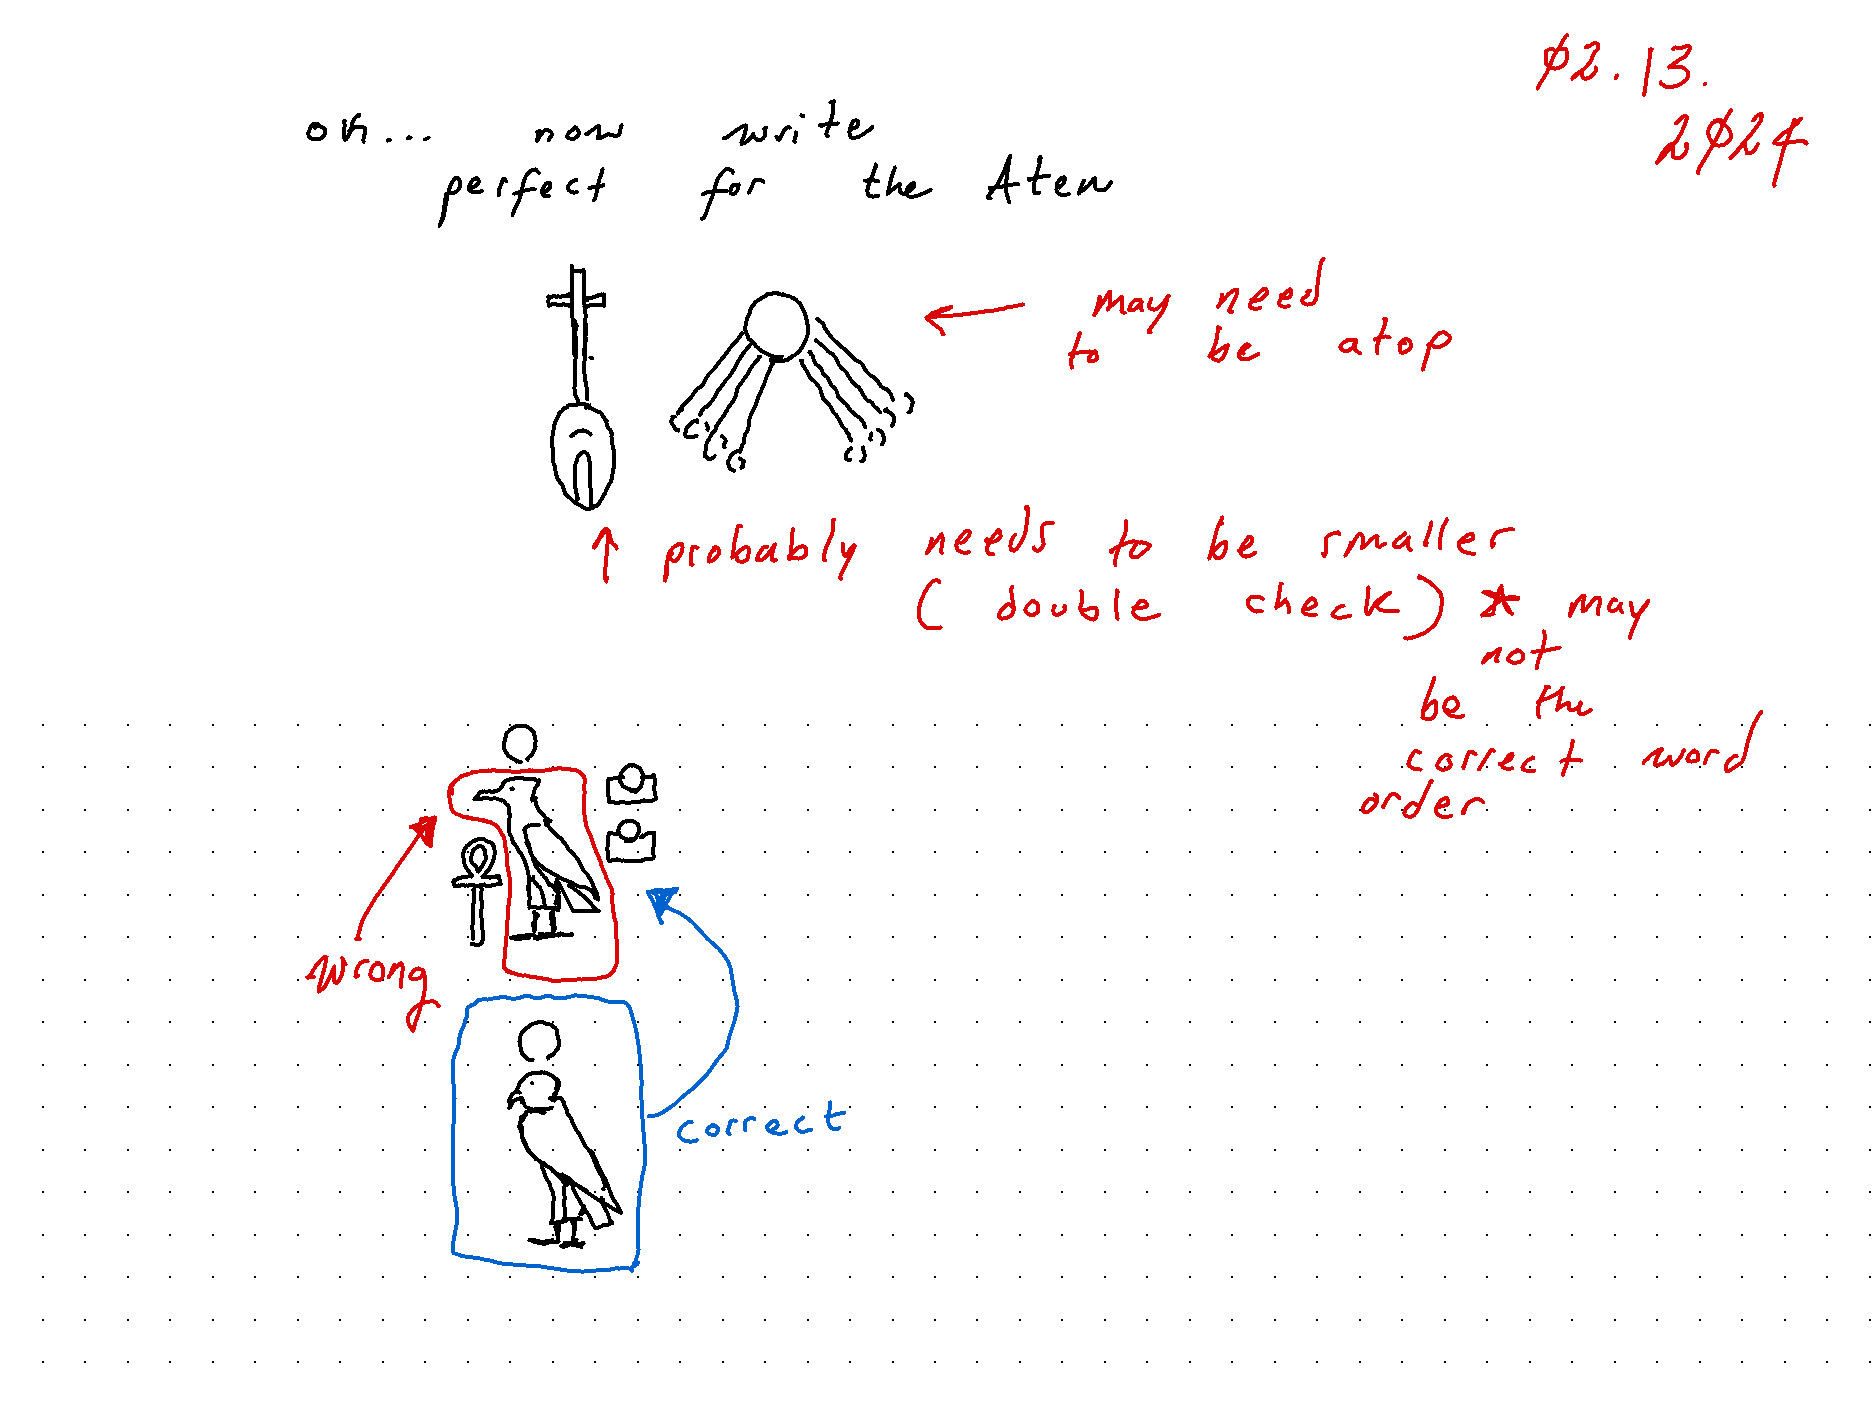 ø2.13.
2ø24
ok... now write
perfect for the Aten
𓄤 𓇳
may need
to be atop
probably needs to be smaller
(double check) * may
not
be the
correct word
order
wrong
correct